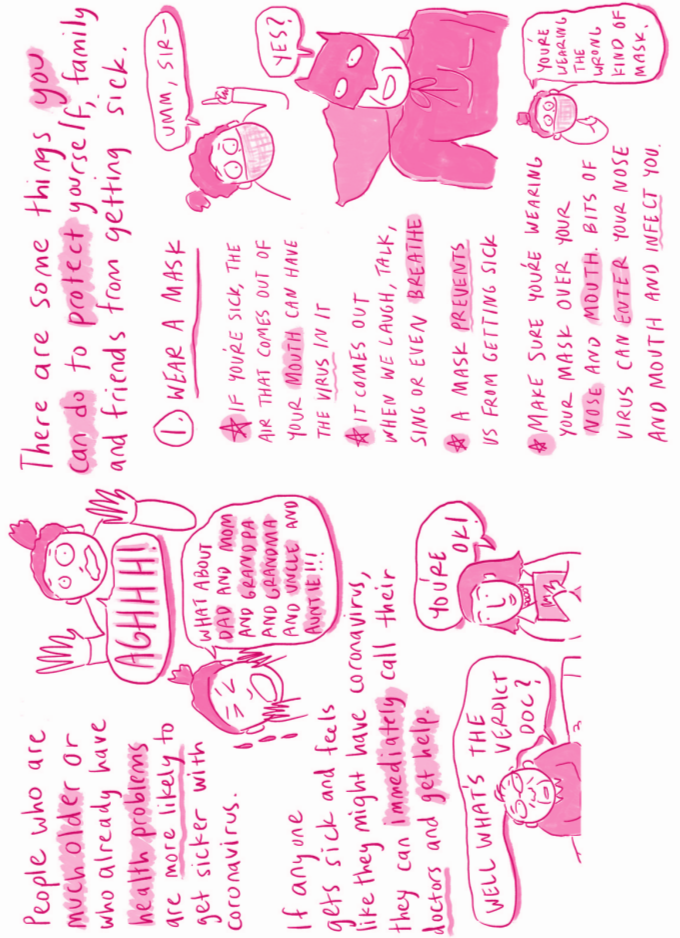 People who are
much older or
who already have
health problems
are more likely to
get sicker with
coronavirus.
AGHHH!
WHAT ABOUT
DAD AND MOM
AND GRANDPA
AND GRANDMA
AND UNCLE AND
AUNTIE!!!
If anyone
gets sick and feels
like they might have coronavirus,
they can immediately call their
doctors and get help.
WELL WHAT'S THE
VERDICT
DOC?
YOU'RE
OK!
There are some things you
can do to protect yourself, family
and friends from getting sick.
1. WEAR A MASK
IF YOU'RE SICK, THE
AIR THAT COMES OUT OF
YOUR MOUTH CAN HAVE
THE VIRUS IN IT
IT COMES OUT
WHEN WE LAUGH, TALK,
SING OR EVEN BREATHE
A MASK PREVENTS
US FROM GETTING SICK
MAKE SURE YOU'RE WEARING
YOUR MASK OVER YOUR
NOSE AND MOUTH. BITS OF
VIRUS CAN ENTER YOUR NOSE
AND MOUTH AND INFECT YOU.
UMM, SIR-
YES?
YOU'RE
WEARING
THE
WRONG
KIND OF
MASK.